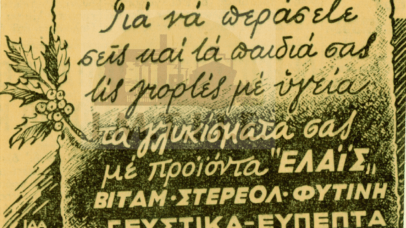 Γιά νά περάσετε
σεῖς καί τά παιδιά σας
τίς γιορτές μέ ὑγεία
τα γλυκίσματα σας
μέ προϊόντα "ΕΛΑΪΣ„
ΒΙΤΑΜ·ΣΤΕΡΕΟΛ·ΦΥΤΙΝΗ
ΓΕΥΣΤΙΚΑ-ΕΥΠΕΠΤΑ